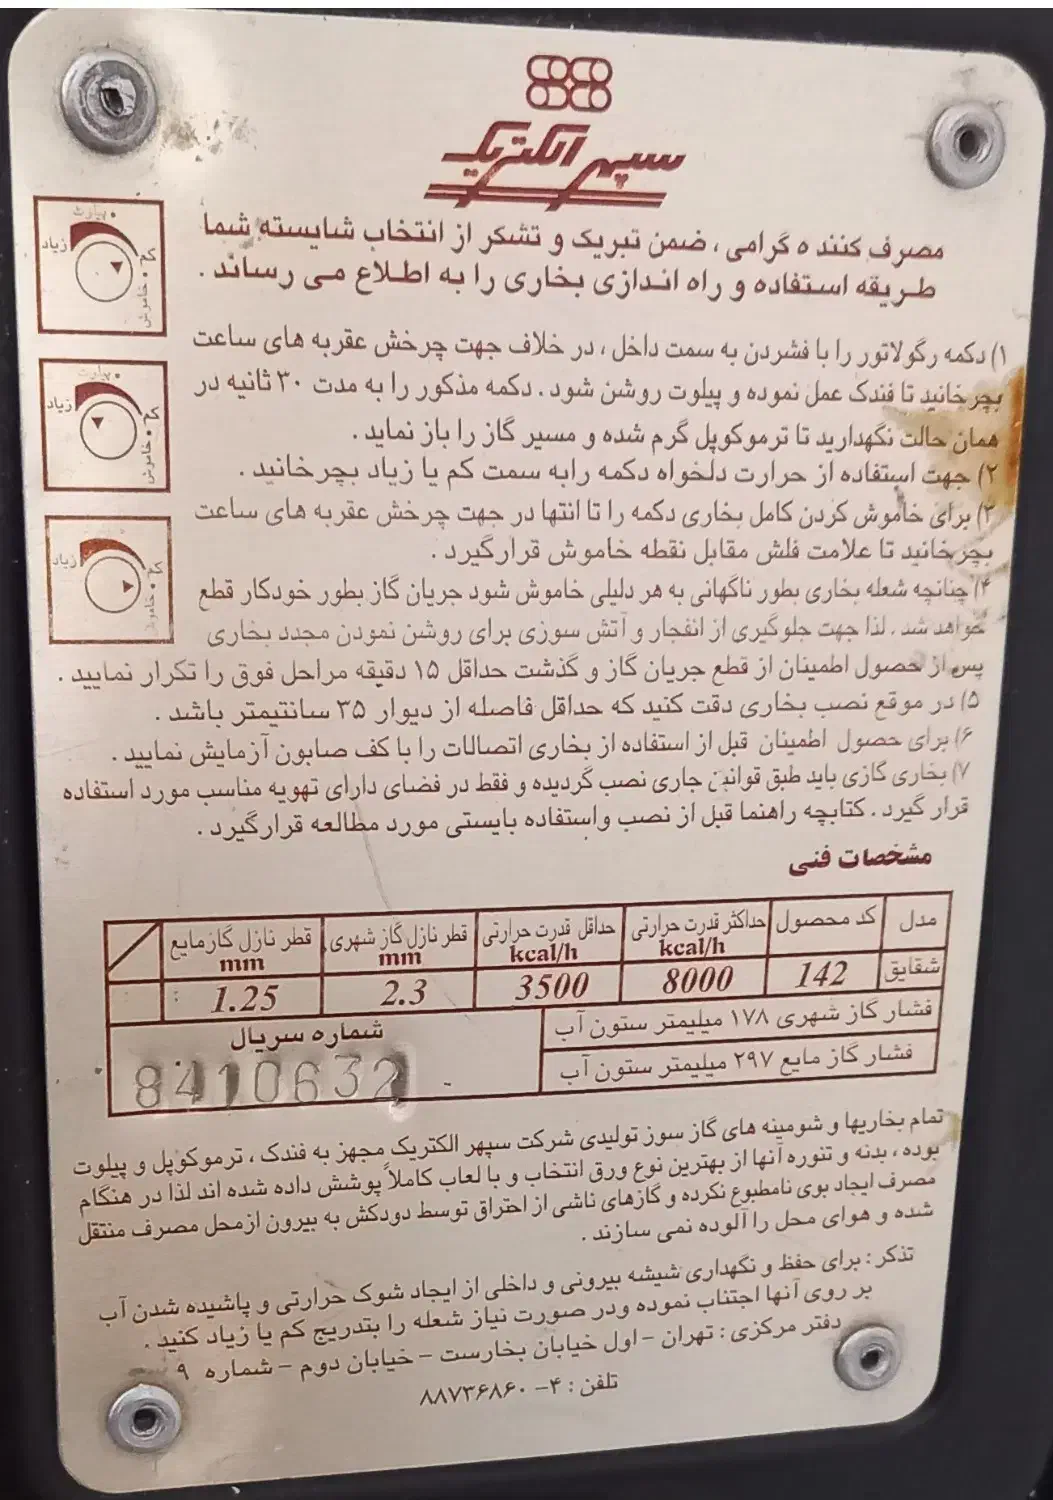 سپهر الکتریک
مصرف کننده گرامی ، ضمن تبریک و تشکر از انتخاب شایسته شما
طریقه استفاده و راه اندازی بخاری را به اطلاع می رساند .
پیلوت
زیاد
کم
خاموش
پیلوت
زیاد
کم
خاموش
زیاد
کم
خاموش
۱) دکمه رگولاتور را با فشردن به سمت داخل ، در خلاف جهت چرخش عقربه های ساعت
بچرخانید تا فندک عمل نموده و پیلوت روشن شود . دکمه مذکور را به مدت ۳۰ ثانیه در
همان حالت نگهدارید تا ترموکوپل گرم شده و مسیر گاز را باز نماید .
۲) جهت استفاده از حرارت دلخواه دکمه رابه سمت کم یا زیاد بچرخانید .
۳) برای خاموش کردن کامل بخاری دکمه را تا انتها در جهت چرخش عقربه های ساعت
بچرخانید تا علامت فلش مقابل نقطه خاموش قرارگیرد .
۴) چنانچه شعله بخاری بطور ناگهانی به هر دلیلی خاموش شود جریان گاز بطور خودکار قطع
خواهد شد . لذا جهت جلوگیری از انفجار و آتش سوزی برای روشن نمودن مجدد بخاری
پس از حصول اطمینان از قطع جریان گاز و گذشت حداقل ۱۵ دقیقه مراحل فوق را تکرار نمایید .
۵) در موقع نصب بخاری دقت کنید که حداقل فاصله از دیوار ۳۵ سانتیمتر باشد .
۶) برای حصول اطمینان قبل از استفاده از بخاری اتصالات را با کف صابون آزمایش نمایید .
۷) بخاری گازی باید طبق قوانین جاری نصب گردیده و فقط در فضای دارای تهویه مناسب مورد استفاده
قرار گیرد . کتابچه راهنما قبل از نصب واستفاده بایستی مورد مطالعه قرارگیرد .
مشخصات فنی
مدل کد محصول حداکثر قدرت حرارتی kcal/h حداقل قدرت حرارتی kcal/h قطر نازل گاز شهری mm قطر نازل گازمایع mm
شقایق 142 8000 3500 2.3 1.25
فشار گاز شهری ۱۷۸ میلیمتر ستون آب
فشار گاز مایع ۲۹۷ میلیمتر ستون آب
شماره سریال
8410632
تمام بخاریها و شومینه های گاز سوز تولیدی شرکت سپهر الکتریک مجهز به فندک ، ترموکوپل و پیلوت
بوده ، بدنه و تنوره آنها از بهترین نوع ورق انتخاب و با لعاب کاملاً پوشش داده شده اند لذا در هنگام
مصرف ایجاد بوی نامطبوع نکرده و گازهای ناشی از احتراق توسط دودکش به بیرون ازمحل مصرف منتقل
شده و هوای محل را آلوده نمی سازند .
تذکر : برای حفظ و نگهداری شیشه بیرونی و داخلی از ایجاد شوک حرارتی و پاشیده شدن آب
بر روی آنها اجتناب نموده ودر صورت نیاز شعله را بتدریج کم یا زیاد کنید .
دفتر مرکزی : تهران – اول خیابان بخارست – خیابان دوم – شماره ۹
تلفن : ۴– ۸۸۷۳۶۸۶۰